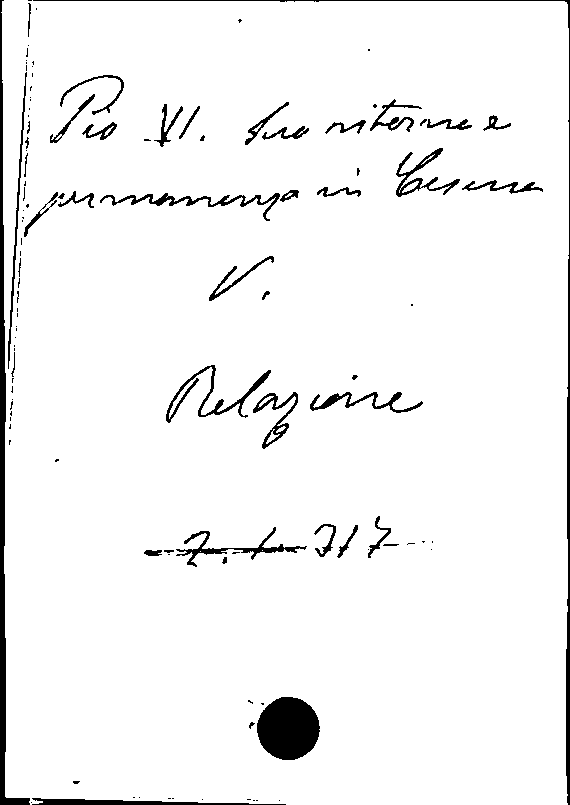 Pio VI. suo ritorno e
permanenza in Cesena
V.
Relazione